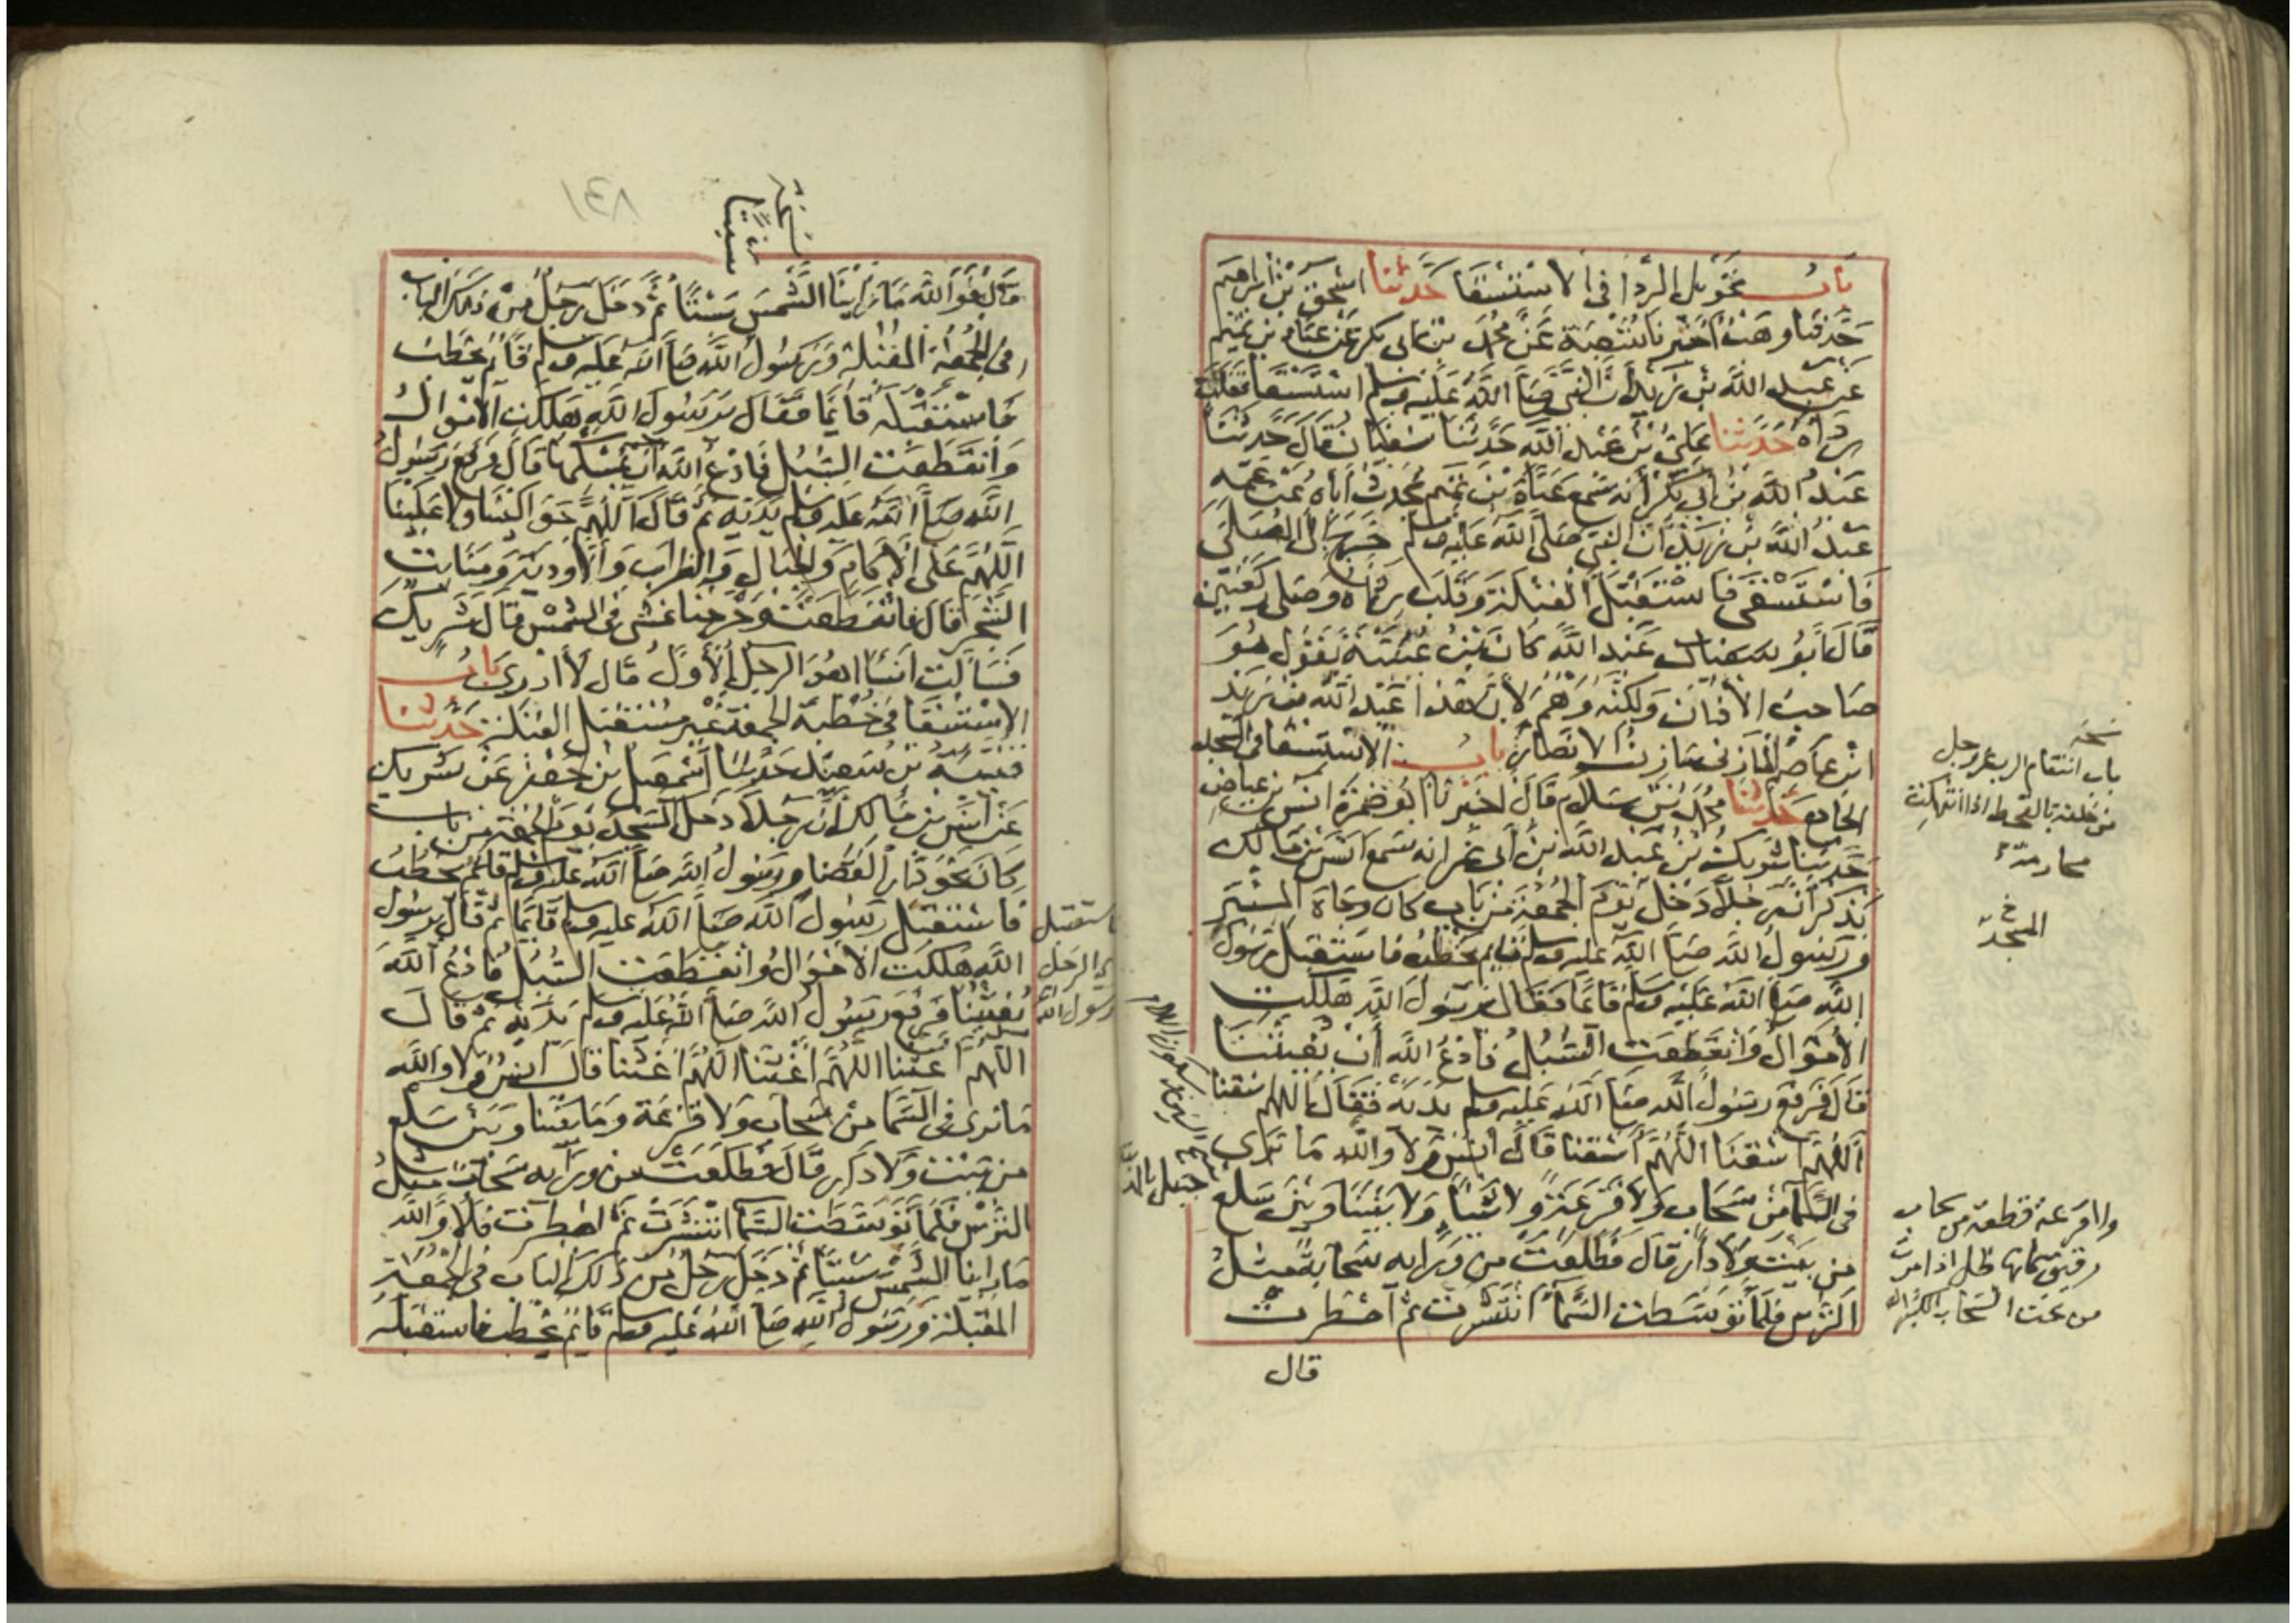 باب تحويل الرداء في الاستسقا حدثنا اسحق بن ابراهيم
حدثنا وهب اخبرنا شعبة عن محمد بن ابي بكر عن عباد بن تميم
عن عبد الله بن زيد ان النبي صلى الله عليه وسلم استسقا فقلب
رداه حدثنا علي بن عبد الله حدثنا سفيان قال حدثنا
عبد الله بن ابي بكر انه سمع عباد بن تميم يحدث اباه عن عمه
عبد الله بن زيد ان النبي صلى الله عليه وسلم خرج الى المصلى
فاستسقى فاستقبل القبلة وقلب رداه وصلى ركعتين
قال ابو عبد الله كان بن عيينة يقول هو
صاحب الاذان ولكنه وهم لان هذا عبد الله بن زيد
ابن عاصم المازني مازن الانصار باب الاستسقا في المسجد
الجامع حدثنا محمد بن سلام قال اخبرنا ابو ضمرة انس بن عياض
حدثنا شريك بن عبد الله بن ابي نمر انه سمع انس بن مالك
يذكر ان رجلا دخل يوم الجمعة من باب كان وجاه المنبر
ورسول الله صلى الله عليه وسلم قايم يخطب فاستقبل رسول
الله صلى الله عليه وسلم قائما فقال يرسول الله هلكت
الاموال وانقطعت السبل فادع الله ان يغيثنا
قال فرفع رسول الله صلى الله عليه وسلم يديه فقال اللهم اسقنا
اللهم اسقنا اللهم اسقنا قال انس ولا والله ما نرى
في السما من سحاب ولا قزعة ولا شيئا ولا بيننا وبين سلع
من بيت ولا دار قال فطلعت من ورايه سحابة مثل
الترس فلما توسطت السماء انتشرت ثم امطرت
قال
نسخه
باب انتقام الرب عز وجل
من خلقه بالقحط اذا انتهكت
محارمه
خ
المسجد
قزعة قطعة من سحاب
رقيق كانها ظل اذا مرت
من تحت السحاب
سلع
جبل بالمدينة
نسخة
سبتا
قال فوالله ما راينا الشمس ستا ثم دخل رجل من ذلك الباب
في الجمعة المقبلة ورسول الله صلى الله عليه وسلم قائم يخطب
فاستقبله قائما فقال يرسول الله هلكت الاموال
وانقطعت السبل فادع الله ان يمسكها قال فرفع رسول
الله صلى الله عليه وسلم يديه ثم قال اللهم حوالينا ولا علينا
اللهم على الاكام والجبال والظراب والاودية ومنابت
الشجر قال فانقطعت وخرجنا نمشي في الشمس قال شريك
فسالت انسا اهو الرجل الاول قال لا ادري باب
الاستسقا في خطبة الجمعة غير مستقبل القبلة حدثنا
قتيبة بن سعيد حدثنا اسمعيل بن جعفر عن شريك
عن انس بن مالك ان رجلا دخل المسجد يوم الجمعة من باب
كان نحو دار القضا ورسول الله صلى الله عليه وسلم قائم يخطب
فاستقبل رسول الله صلى الله عليه وسلم قايما ثم قال يرسول
الله هلكت الاموال وانقطعت السبل فادع الله
يغيثنا فرفع رسول الله صلى الله عليه وسلم يديه ثم قال
اللهم اغثنا اللهم اغثنا اللهم اغثنا قال انس ولا والله
ما نرى في السما من سحاب ولا قزعة وما بيننا وبين سلع
من بيت ولا دار قال فطلعت من ورايه سحابة مثل
الترس فلما توسطت السما انتشرت ثم امطرت فلا والله
ما راينا الشمس ستا ثم دخل رجل من ذلك الباب في الجمعة
المقبلة ورسول الله صلى الله عليه وسلم قائم يخطب فاستقبله
فاستقبل
الرجل
رسول الله